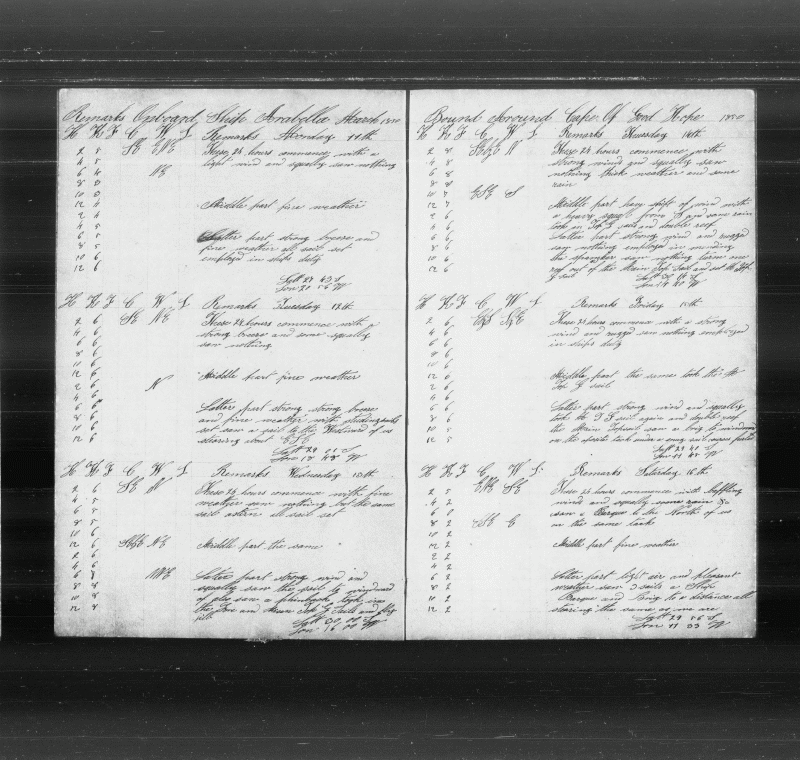 Remarks Onboard Ship Arabella March 1850
H K F C W L Remarks Monday 11th
2 8 SE ENE These 24 hours commence with a
4 5 light wind and squally saw nothing
6 4 NE
8 3
10 3
12 4 Middle part fine weather
2 4
4 5
6 5 Latter part strong breese and
8 5 fine weather all sail set
10 6 employed in ships duty
12 6
Latt 29 43 S
Lon 20 56 W
H K F C W L Remarks Tuesday 12th
2 6 SE NE These 24 hours commence with a
4 6 strong breese and some squally
6 6 saw nothing
8 6
10 6
12 6 Middle part fine weather
2 6 N
4 6
6 6 Latter part strong strong breese
8 6 and fine weather with studingsails
10 6 set saw a sail to the Westward of us
12 6 stearing about ESE
Latt 29 51 S
Lon 18 48 W
H K F C W L Remarks Wednesday 13th
2 6 SE N These 24 hours commence with fine
4 5 weather saw nothing but the same
6 5 sail astern all sail set
8 5
10 5
12 6 SEbE NE Middle part the same
2 6
4 6
6 8 NNE Latter part strong wind and
8 8 squally saw the sail to windward
10 8 took in
12 8 the Fore and Main Top G Sails and flying
Latt 30 00 S
Lon 16 00 W
Bound around Cape Of Good Hope 1850
H K F C W L Remarks Thursday 14th
2 8 SEbE N These 24 hours commence with
4 8 strong winds and squally saw
6 8 nothing thick weather and some
8 8 rain
10 7 ESE S
12 7 Middle part have shift of wind with
2 6 a heavy squall from S and some rain
4 6 took in Top G sails and double reef
6 6 Latter part strong wind and rugged
8 6 saw nothing employed in mending
10 6 the spanker saw nothing turn one
12 6 reef out of the Main Top Sail and set M Top
G sail
Lon 14 40 W
H K F C W L Remarks Friday 15th
2 6 EbS SbE These 24 hours commence with a strong
4 6 wind and rugged saw nothing employed
6 6 in ships duty
8 6
10 6
12 6 Middle part the same took the M
2 6 Top G sail
4 6
6 6 Latter part strong wind and squally
8 6 took the T G sail again and double reef
10 5 the Main Topsail saw a brig to windward
12 5 on the oposite tack under a easy sail
Latt 29 41 S
Lon 11 48 W
H K F C W L Remarks Saturday 16th
2 5 ENE SE These 24 hours commence with baffling
4 2 wind and squally some rain &c
6 0 saw a Barque to the North of us
8 2 ESE E on the same tack
10 2
12 2 Middle part fine weather
2 2
4 2
6 2 Latter part light air and pleasant
8 2 weather saw 3 sails a Ship
10 2 Barque and Brig to a distance all
12 2 stearing the same as we are
Latt 29 56 S
Lon 11 33 W